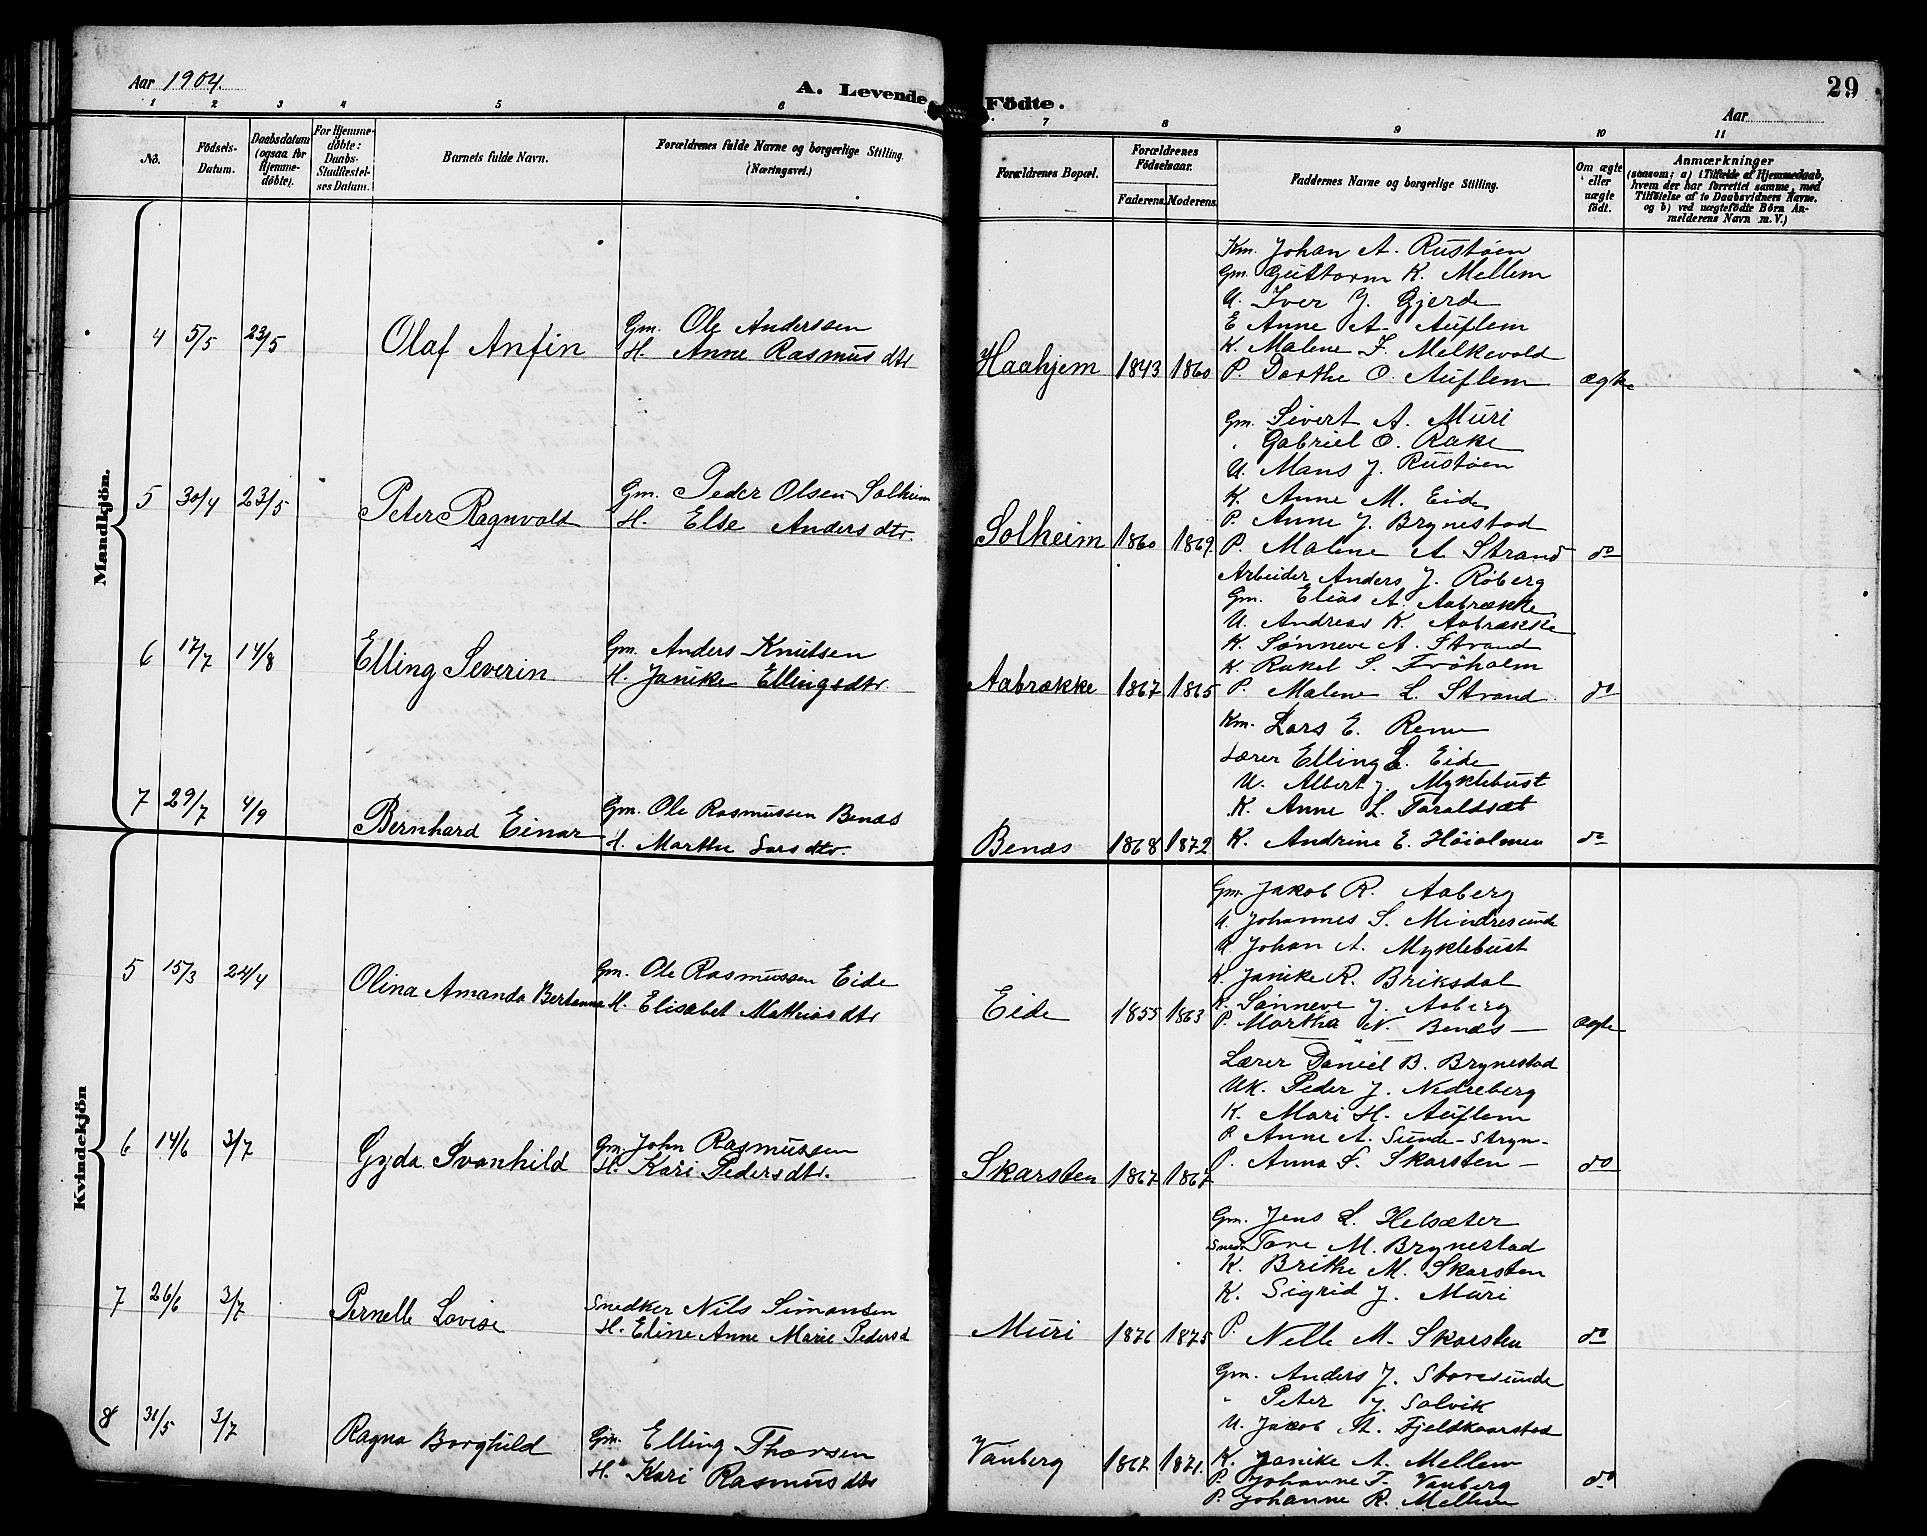 Aar 1904.
A. Levende Födte.
29
Aar
1 2 3 4 5 6 7 8 9 10 11
No.
Födsels-Datum.
Daabsdatum (ogsaa for Hjemme-döbte).
For Hjemme-döbte: Daabs-Stadfæstel-ses Datum.
Barnets fulde Navn.
Forældrenes fulde Navne og borgerlige Stilling.
(Næringsvei.)
Forældrenes Bopæl.
Forældrenes Födselsaar.
Faderens. Moderens.
Faddernes Navne og borgerlige Stilling.
Om ægte eller uægte födt.
Anmærkninger
(saasom; a) i Tilfælde af Hjemmedaab,
hvem der har forrettet samme, med
Tilföielse af to Daabsvidners Navne.
og b) ved uægtefödte Börn An-
melderens Navn m. V.)
Mandkjön.
4 5/5 23/5 Olaf Anfin
Gm. Ole Anderssen
H. Anne Rasmusdtr
Haahjem 1843 1860
Km. Johan A. Rustöen
Gm. Guttorm K. Mellem
U. Iver J. Gjerde
E Anne A. Auflem
K. Malene J. Melkevold
P. Dorthe O. Auflem ægte
5 30/4 23/5 Peter Ragnvald
Gm. Peder Olsen Solheim
H. Else Andersdtr.
Solheim 1860 1869.
Gm. Sivert A. Muri
" Gabriel O. Rake
U. Mans J. Rustöen
K. Anne M. Eide
P. Anne J. Brynestad
P. Malene A. Strand do
6 17/7 14/8 Elling Severin
Gm. Anders Knutsen
H. Janike Ellingsdtr.
Aabrække 1867 1865
Arbeider Anders J. Röberg
Gm. Elias A. Aabrække
U. Andreas K. Aabrække
K. Sönneve A. Strand
K. Rakel S. Fröholm
P. Malene L. Strand do
7 29/7 4/9 Bernhard Einar
Gm. Ole Rasmussen Benæs
H. Marthe Larsdtr.
Benæs 1868 1872
Km. Lars E. Renn
Lærer Elling L. Eide
U. Albert J. Myklebust
K. Anne L. Taraldsæt
K. Andrine E. Höiolmen do
Kvindekjön
5 15/3 24/4 Olina Amanda Bertanna
Gm. Ole Rasmussen Eide
H. Elisabet Mathiasdtr
Eide 1855 1863
Gm. Jakob R. Aaberg
U. Johannes S. Mindresunde
U Johan A. Myklebust
K. Janike R. Briksdal
K. Sönneve J. Aaberg
P. Martha N. Benæs ægte
6 14/6 3/7 Gyda Svanhild
Gm. John Rasmussen
H. Kari Pedersdtr.
Skarsten 1867 1867
Lærer Daniel B. Brynestad
UK. Peder J. Nedreberg
K. Mari H. Auflem
P. Anne A. Sunde-Stryn-
P. Anna S. Skarsten do
7 26/6 3/7 Pernelle Lovise
Snedker Nils Simonsen
H. Eline Anne Marie Pedersd
Muri 1876 1875
Gm. Jens L. Helsæter
Snedk Tore M. Brynestad
K. Brithe M. Skarsten
K. Sigrid J. Muri
P. Nelle M. Skarsten do
8 31/5 3/7 Ragna Borghild
Gm. Elling Thorsen
H. Kari Rasmusdtr
Vanberg 1867 1871.
Gm. Anders J. Storesunde
" Peter J. Solvik
U. Jakob A. Fjeldkaarstad
K. Janike A. Mellem
P. Johanne T. Vanberg
P. Johanne R. Mellem do